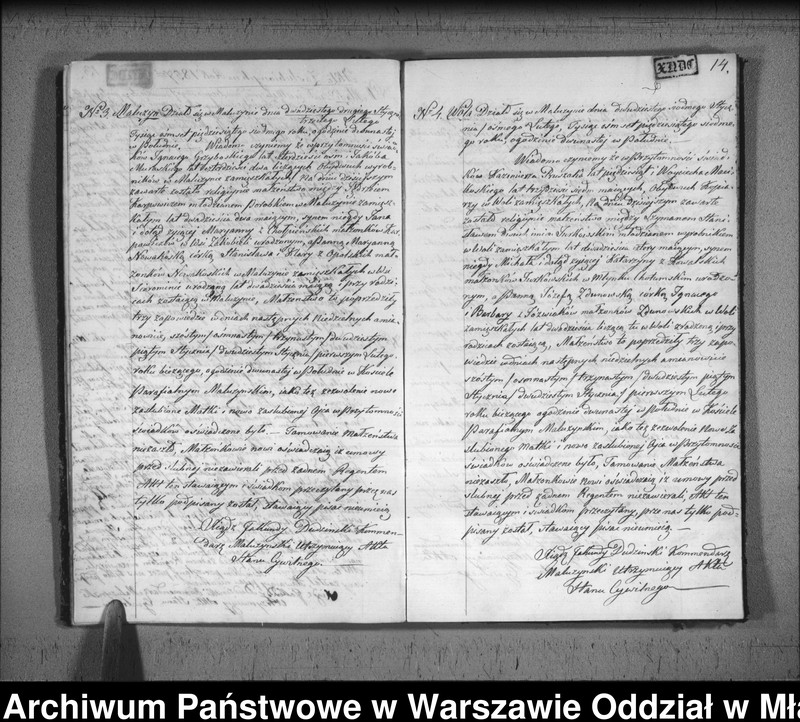 No 3. Małużyn Działo się w Małużynie dnia dwudziestego drugiego Stycznia
trzeciego Lutego
tysiąc ośmset pięćdziesiątego siódmego roku, o godzinie dwunastej
w południe, Wiadomo czynimy że w przytomności świad
ków Ignacego lat czterdzieści ośm, Jakóba
lat czterdzieści dwa liczących, obydwóch wyrob
ników w Małużynie zamieszkałych, Na dniu dzisiejszym
zawarte zostało religijne małżeństwo między
młodzianem Parobkiem w Małużynie zamiesz
kałym lat dwadzieścia dwa mającym, synem niegdy Jana
i dotąd żyjącej Maryanny z małżonków Kar
w Wsi urodzonym, a Panną Maryanną
Nowakoską córką Stanisława i Klary z Opolskich mał
żonków Nowakoskich w Małużynie zamieszkałych w Wsi
urodzoną lat dwadzieścia mającą i przy rodzi
cach zostającą w Małużynie, Małżeństwo to poprzedziły
trzy zapowiedzie w dniach następnych Niedzielnych a mia
nowicie, szóstym/ośmnastym/trzynastym/dwudziestym
piątym Stycznia/dwudziestym Stycznia/pierwszym Lutego
roku bieżącego, o godzinie dwunastej w południe w Kościele
Parafialnym Małużynskim, jako też zezwolenie nowo
zaślubionego Matki i nowo zaślubionej Ojca w przytomności
świadków oświadczone było. — Tamowanie Małżeństwa
niezaszło, Małżonkowie nowi oświadczają iż umowy
przedślubnej niezawierali przed żadnem Regentem
Akt ten stawającym i świadkom przeczytany przez nas
tylko podpisany został, stawający pisać nieumieją
Xiądz Jakundy Dudzinski Kommen-
darz Małużynski Utrzymujący Akta
Stanu Cywilnego.
XNDC 14.
No 4. Wola Działo się w Małużynie dnia dwudziestego siódmego Stycz
nia/ósmego Lutego, tysiąc ośmset pięćdziesiątego siódme
go roku, o godzinie dwunastej w południe.
Wiadomo czynimy że w przytomności świad
ków Kazimierza lat pięćdziesiąt, i Woyciecha
lat trzydzieści siedm mających, Obydwóch Gospoda
rzy w Woli zamieszkałych, Na dniu dzisiejszym zawarte
zostało religijne małżeństwo między Szymonem Stani
sławem Turkoskim, młodzianem wyrobnikiem
w Woli zamieszkałym lat dwadzieścia cztery mającym, synem
niegdy Michała i dotąd żyjącej Katarzyny z
małżonków Turkoskich w Młynku urodzo
nym, a Panną Józefą Zdunowską córką Ignacego
i Barbary z Józwiaków małżonków Zdunowskich w Woli
zamieszkałych lat dwadzieścia liczącą tu w Woli zrodzoną i przy
rodzicach zostającą, Małżeństwo to poprzedziły trzy zapo
wiedzie w dniach następnych niedzielnych a mianowicie
szóstym/ośmnastym/trzynastym/dwudziestym piątym
Stycznia/dwudziestym Stycznia/pierwszym Lutego
roku bieżącego o godzinie dwunastej w południe w Kościele
Parafialnym Małużynskim, jako też zezwolenie Nowoza
ślubionego matki i nowo zaślubionej Ojca w przytomności
świadków oświadczone było, Tamowanie Małżeństwa
niezaszło, Małżonkowie Nowi oświadczają iż umowy przed
ślubnej przed żadnem Regentem niezawierali, Akt ten
stawającym i świadkom przeczytany, prze nas tylko pod
pisany został, stawający pisać nieumieją —
Xiądz Jakundy Dudzinski Kommendarz
Małużynski Utrzymujący Akta
Stanu Cywilnego
Archiwum Państwowe w Warszawie Oddział w Mł